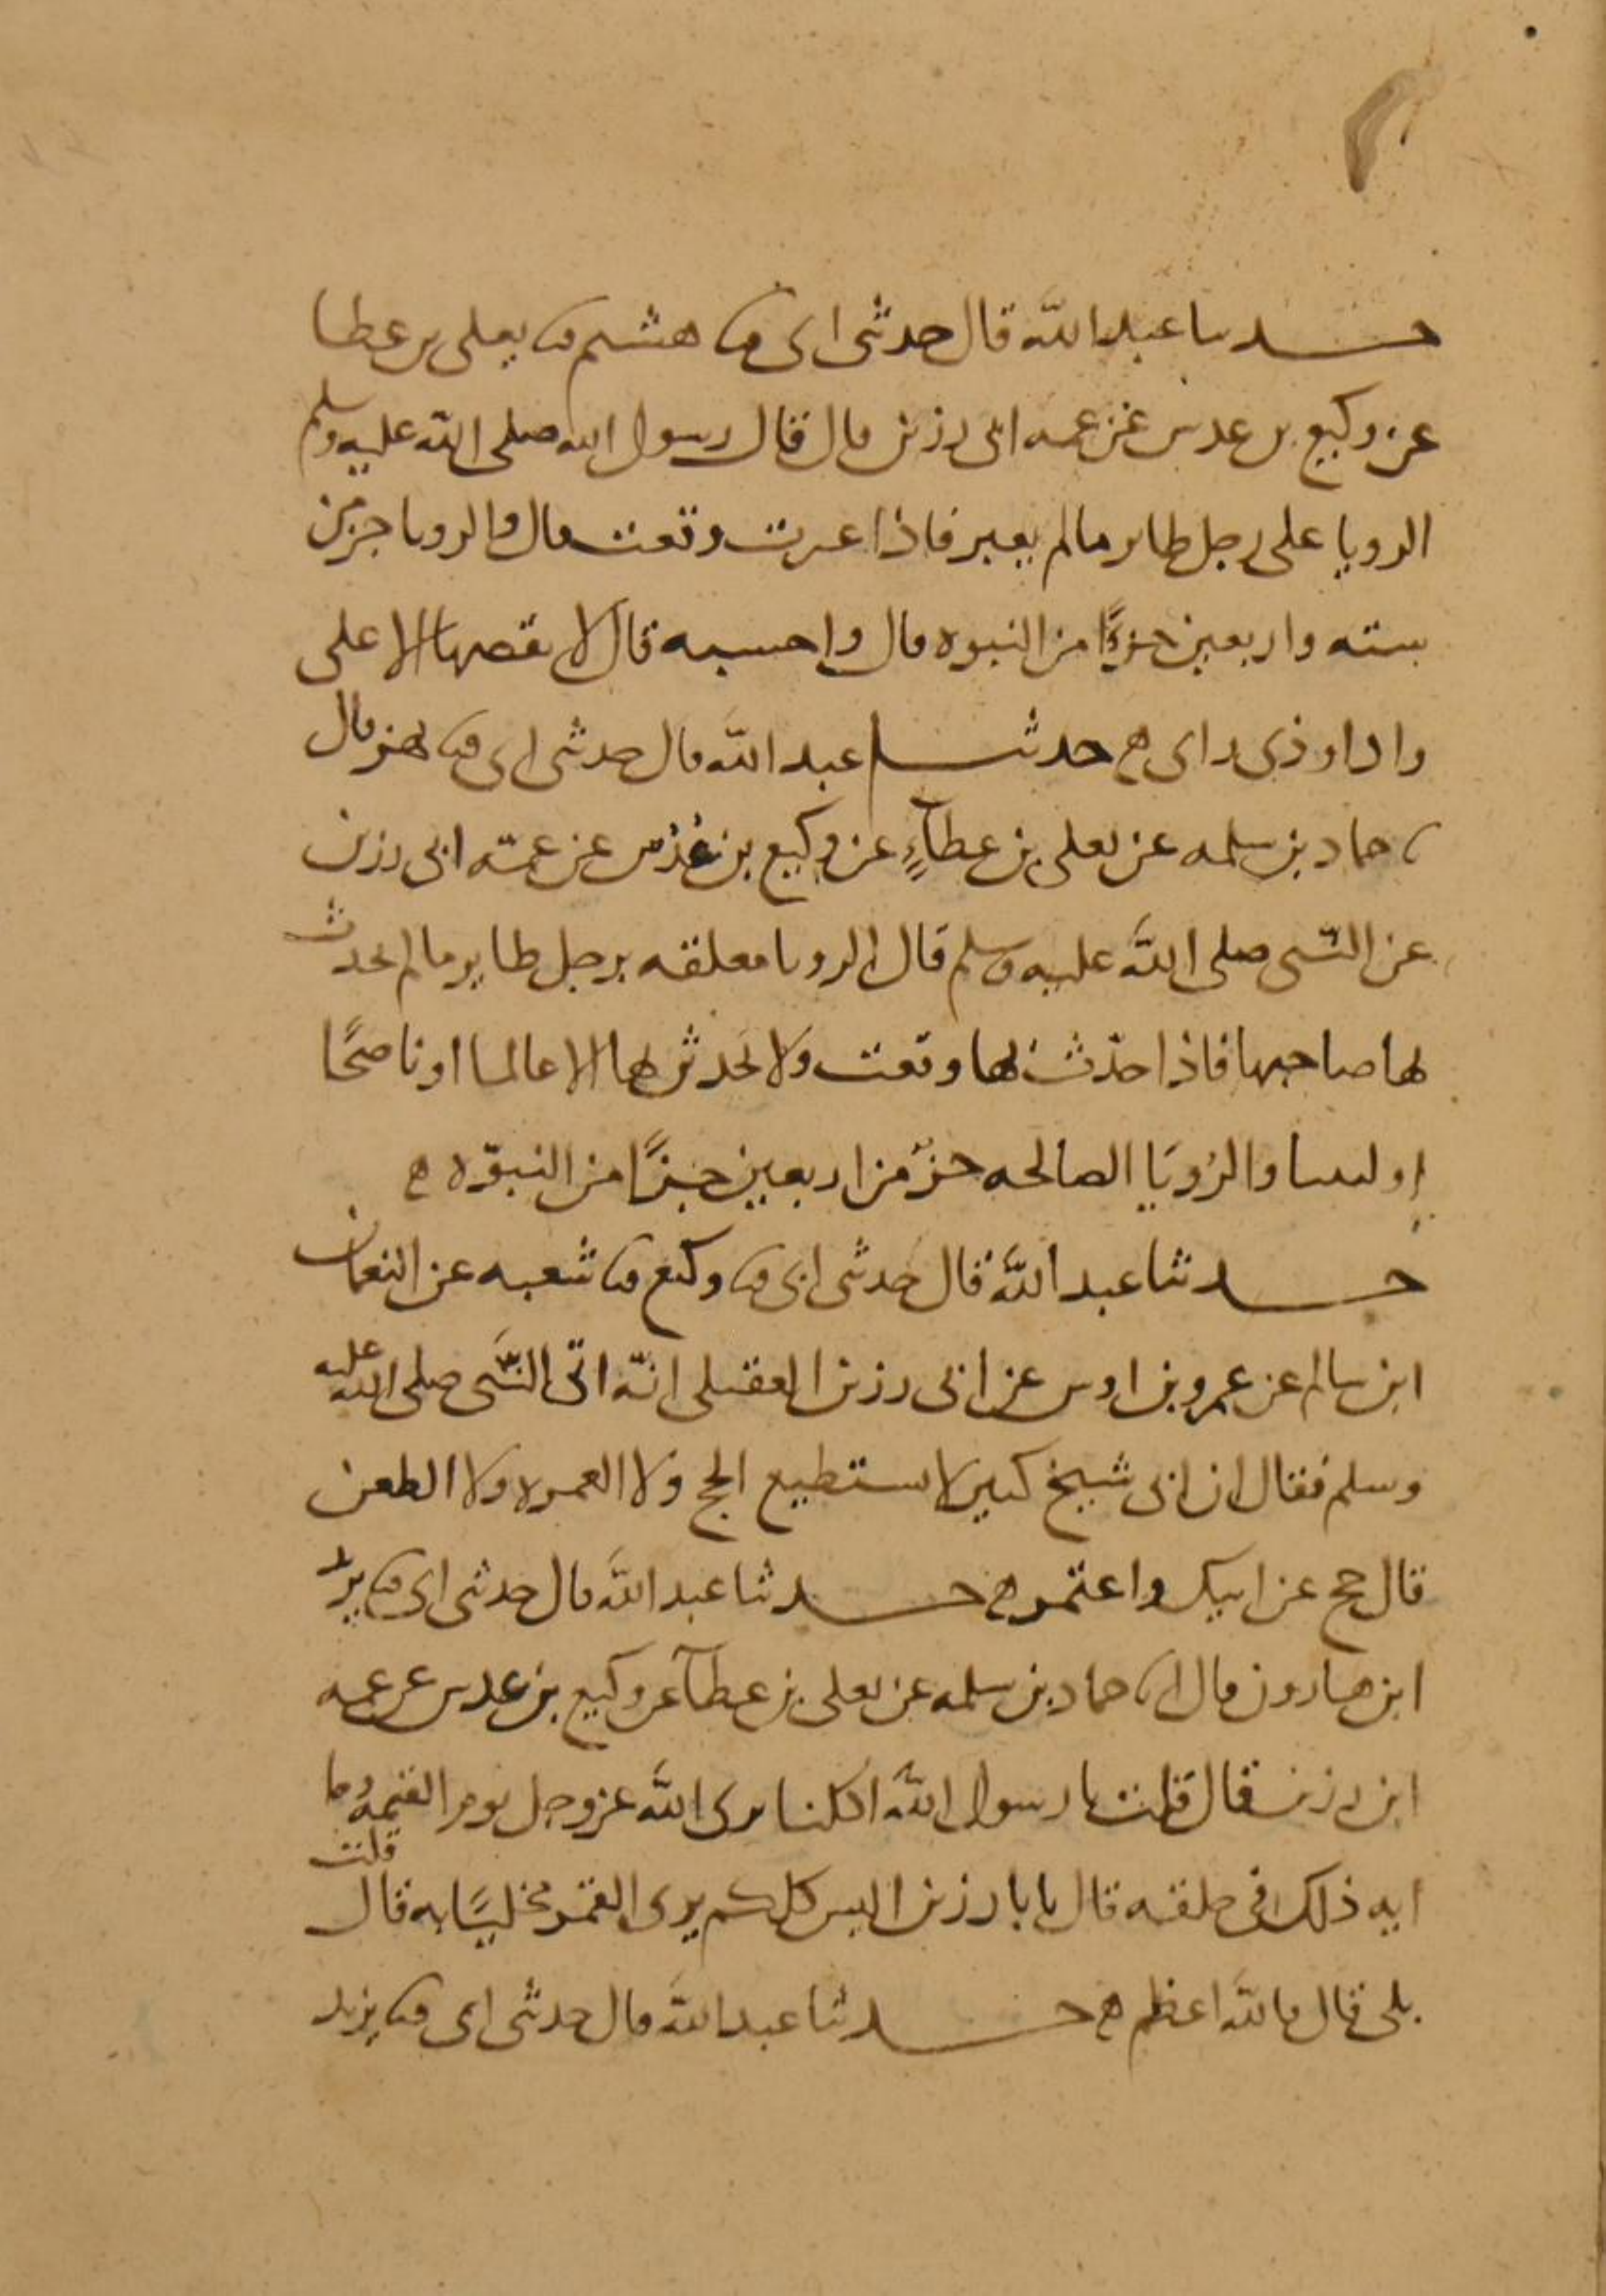 حدثنا عبد الله قال حدثني ابي ثنا هشيم ثنا يعلى بن عطا
عن وكيع بن عدس عن عمه ابي رزين قال قال رسول الله صلى الله عليه وسلم
الرويا على رجل طاير مالم يعبر فاذا عبرت وقعت قال والرويا جز من
ستة واربعين جزءًا من النبوه قال واحسبه قال لا يقصها الا على
واد او ذي راى ه حدثنا عبد الله قال حدثني ابي ثنا بهز قال
ثنا حماد بن سلمه عن يعلى بن عطآءٍ عن وكيع بن عُدُس عن عمّه ابي رزين
عن النبي صلى الله عليه وسلم قال الرويا معلقه برجل طاير مالم يحدث
بها صاحبها فاذا حدّث بها وقعت ولا تحدثوا بها الا عالما او ناصحًا
او لبيبا والرُويَا الصالحه جزؤ من اربعين جزًا من النبوّه ه
حدثنا عبد الله قال حدثني ابي ثنا وكيع ثنا شعبه عن النعمان
ابن سالم عن عمرو بن اوس عن ابي رزين العقيلي انّه اتى النبَّي صلى الله عليه
وسلم فقال ان ابي شيخ كبير لا يستطيع الحج ولا العمره ولا الظعن
قال حج عن ابيك واعتمر ه حدثنا عبد الله قال حدثني ابي ثنا يزيد
ابن هارون قال انا حماد بن سلمه عن يعلى بن عطآ عن وكيع بن عدس عن عمه
ابي رزين قال قلت يا رسول الله اكلنا يرى الله عز وجل يوم القيمه وما
ايه ذلك في خلقه قال يا با رزين اليس كلكم يرى القمر مخليًا به قال قلت
بلى قال فالله اعظم ه حدثنا عبد الله قال حدثني ابي ثنا يزيد